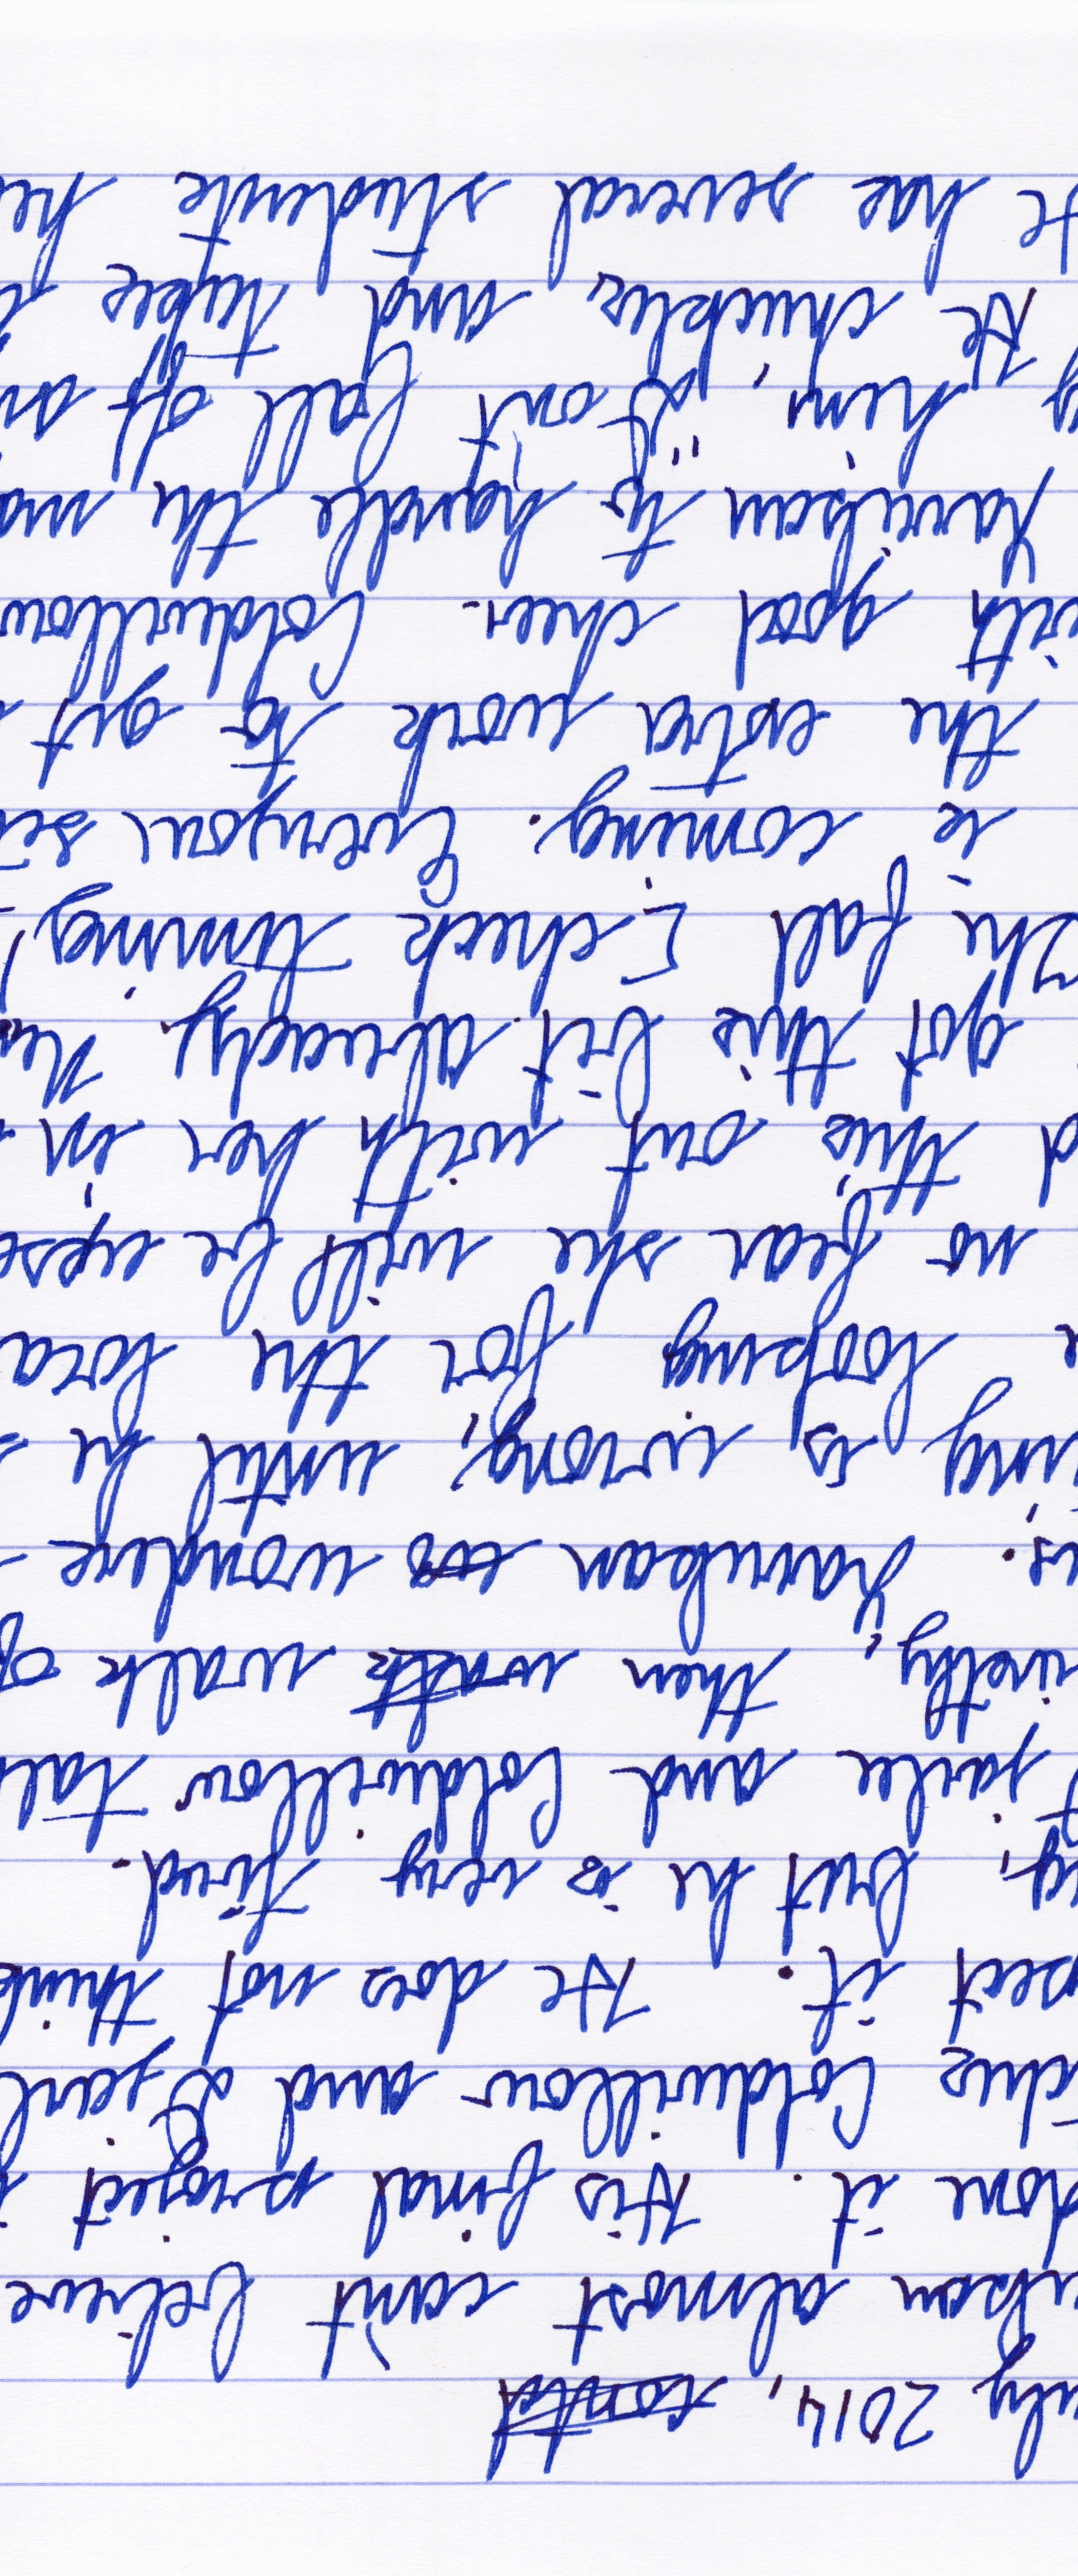 uly 2014,
almost can't believe
done it. His final project
Coldwillow and
pect it. He does not think
but he is very tired.
and Coldwillow tal
then walk walk of
wonders
ing is wrong, until he s
looking for the
no fear she will be upse
d this out with her in
got this bit already.
The fall [check timing]
is coming. Everyone
the extra work to get
with good cheer. Coldwillow
to handle the
g him, "Don't fall off an
He chuckles, and takes
He has several students he